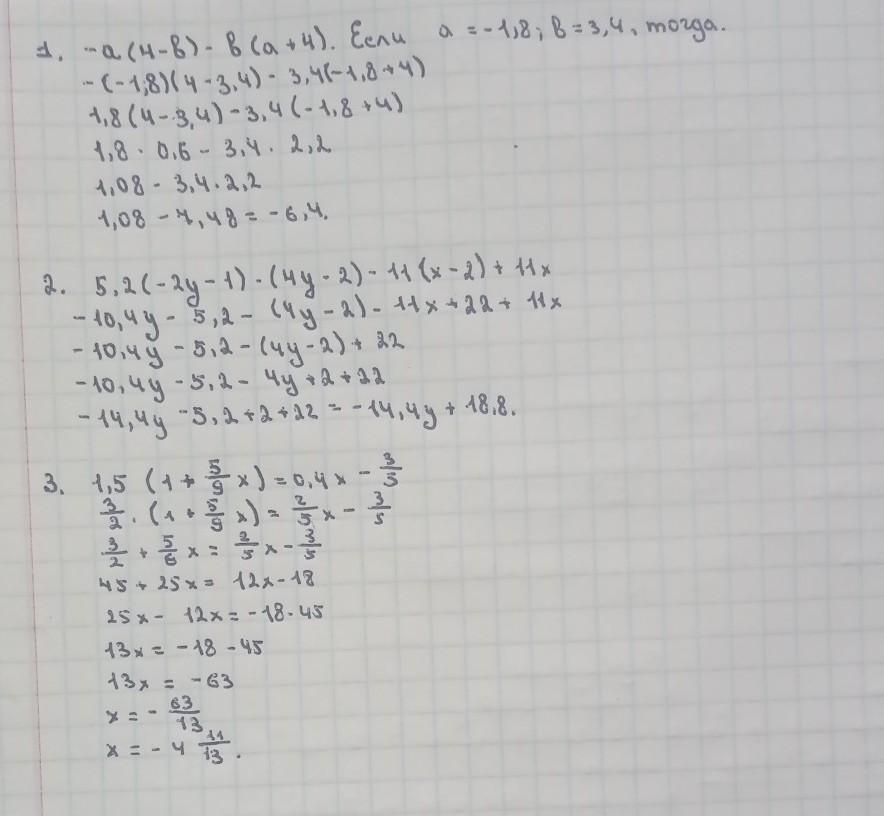 1. -a(4-b)-b(a+4). Если a=-1,8; b=3,4, тогда.
-(-1,8)(4-3,4)-3,4(-1,8+4)
1,8(4-3,4)-3,4(-1,8+4)
1,8·0,6-3,4·2,2
1,08-3,4·2,2
1,08-7,48=-6,4.
2. 5,2(-2y-1)-(4y-2)-11(x-2)+11x
-10,4y-5,2-(4y-2)-11x+22+11x
-10,4y-5,2-(4y-2)+22
-10,4y-5,2-4y+2+22
-14,4y-5,2+2+22=-14,4y+18,8.
3. 1,5(1+5/9x)=0,4x-3/5
3/2·(1+5/9x)=2/5x-3/5
3/2+5/6x=2/5x-3/5
45+25x=12x-18
25x-12x=-18-45
13x=-18-45
13x=-63
x=-63/13
x=-4 11/13.